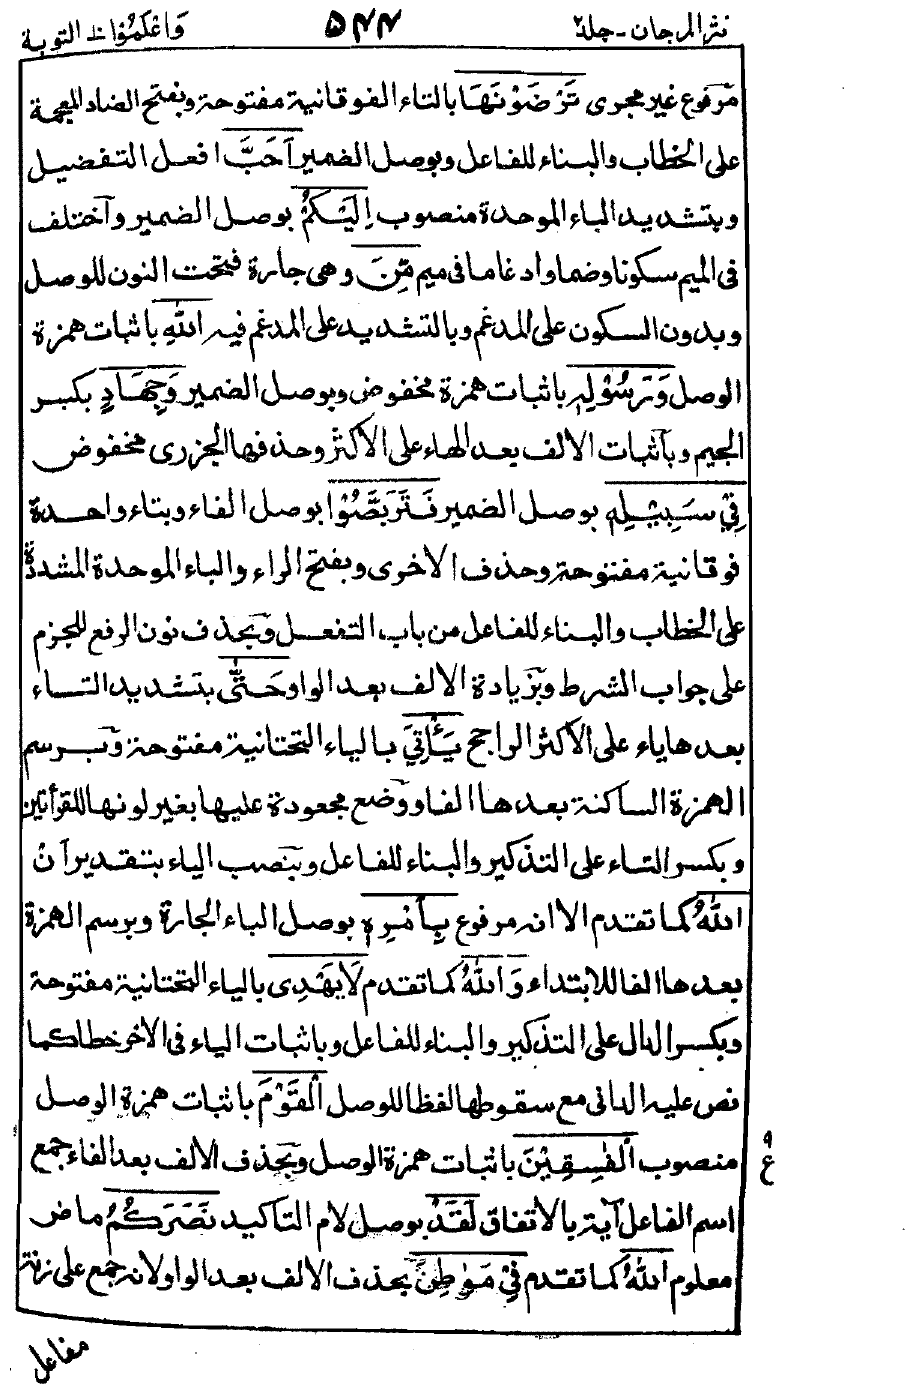 نثر المرجان - جلد ٢
٥٤٤
واعلموا ١٠ التوبة
مرفوع غير مجرى تَرْضَوْنَهَا بالتاء الفوقانية مفتوحة وبفتح الضاد المعجمة
على الخطاب والبناء للفاعل وبوصل الضمير اَحَبَّ افعل التفضيل
وبتشديد الباء الموحدة منصوب اِلَيْكُمْ بوصل الضمير واختلف
فى الميم سكونا وضما وادغاما فى ميم مِّنَ وهى جارة فتحت النون للوصل
وبدون السكون على المدغم وبالتشديد على المدغم فيه اللّٰهِ باثبات همزة
الوصل وَرَسُوْلِهٖ باثبات همزة مخفوض وبوصل الضمير وَجِهَادٍ بكسر
الجيم وباثبات الالف بعد الهاء على الاكثر وحذفها الجزرى مخفوض
فِيْ سَبِيْلِهٖ بوصل الضمير فَتَرَبَّصُوْا بوصل الفاء وبتاء واحدة
فوقانية مفتوحة وحذف الاخرى وبفتح الراء والباء الموحدة المشددة
على الخطاب والبناء للفاعل من باب التفعل وبحذف نون الرفع للجزم
على جواب الشرط وبزيادة الالف بعد الواو حَتّٰى بتشديد التاء
بعدها ياء على الاكثر الراجح يَأْتِيَ بالياء التحتانية مفتوحة وبرسم
الهمزة الساكنة بعدها الفا ووضع مجعودة عليها بغير لونها للقرأتين
وبكسر التاء على التذكير والبناء للفاعل وبنصب الياء بتقدير اَنْ
اللّٰهُ كما تقدم الا انه مرفوع بِاَمْرِهٖ بوصل الباء الجارة وبرسم الهمزة
بعدها الفا للابتداء وَاللّٰهُ كما تقدم لَا يَهْدِى بالياء التحتانية مفتوحة
وبكسر الدال على التذكير والبناء للفاعل وباثبات الياء فى الاخر خطا كما
نص عليه الدانى مع سقوطها لفظا للوصل الْقَوْمَ باثبات همزة الوصل
منصوب الْفٰسِقِيْنَ باثبات همزة الوصل وبحذف الالف بعد الفاء جمع
ع ٩
اسم الفاعل آية بالاتفاق لَقَدْ بوصل لام التاكيد نَصَرَكُمُ ماض
معلوم اللّٰهُ كما تقدم فِيْ مَوٰطِنَ بحذف الالف بعد الواو لانه جمع على زنة
مفاعل